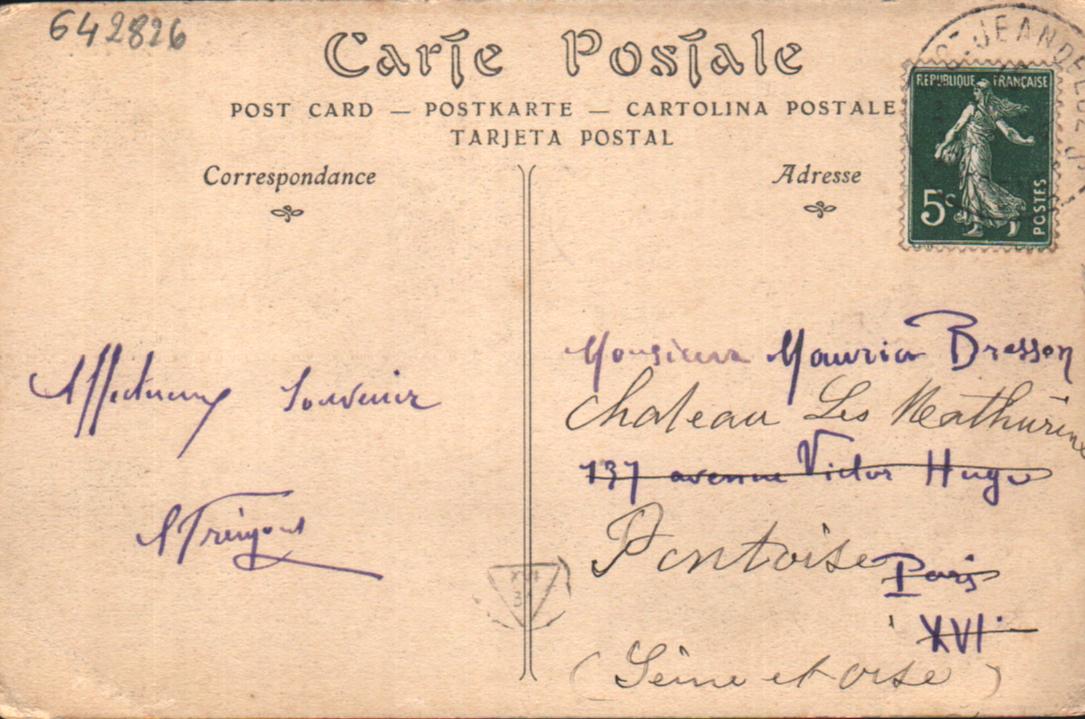 642826
Carte Postale
POST CARD — POSTKARTE — CARTOLINA POSTALE
TARJETA POSTAL
Correspondance
Adresse
ST-JEAN DE LUZ
REPUBLIQUE FRANÇAISE
5c
POSTES
Affectueux Souvenir
Monsieur Maurice Bresson
Chateau Les Mathurins
137 avenue Victor Hugo
Pontoise
Paris
XVI
(Seine et oise)